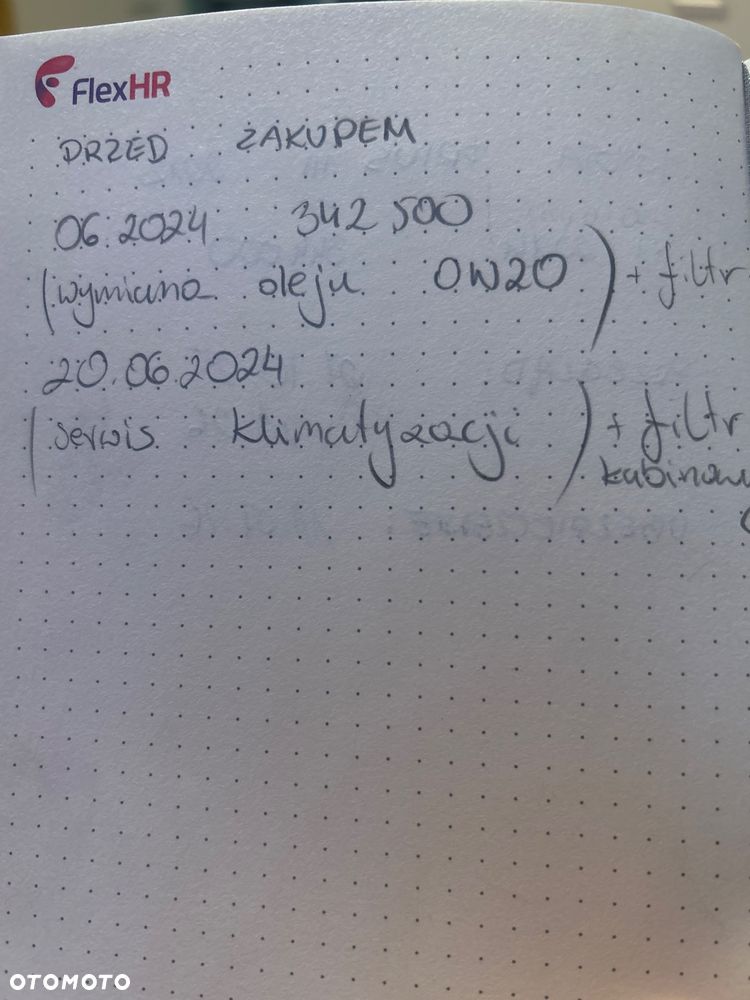 FlexHR
PRZED ZAKUPEM
06.2024 342 500
(wymiana oleju 0W20) + filtr
20.06.2024
(serwis klimatyzacji) + filtr
kabinow
OTOMOTO